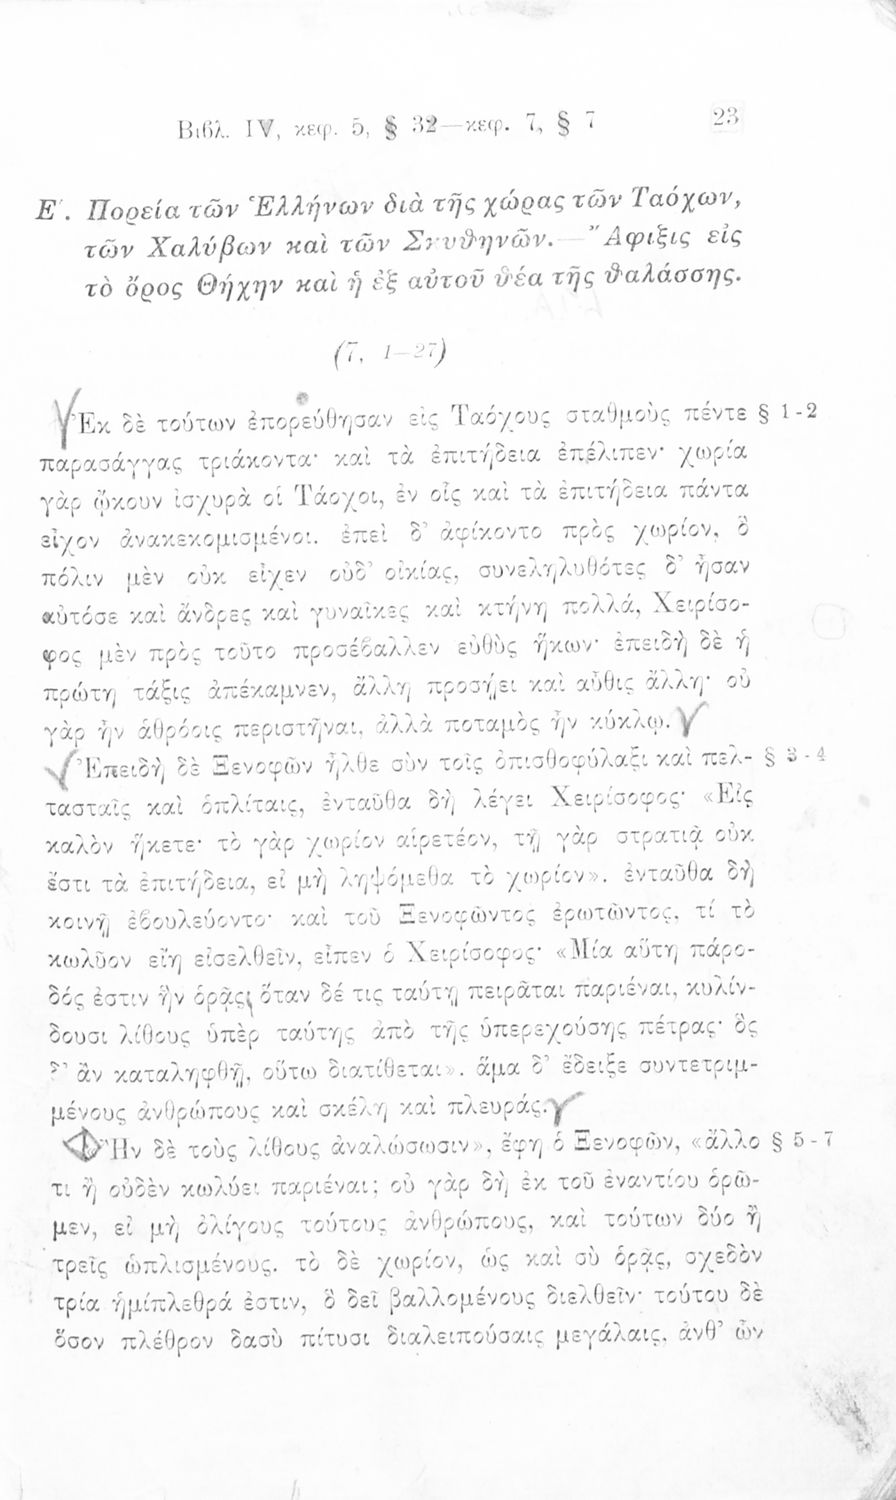 Βιβλ. IV, κεφ. 5, § 32—κεφ. 7, § 7 23
Ε΄. Πορεία τῶν Ἑλλήνων διὰ τῆς χώρας τῶν Ταόχων,
τῶν Χαλύβων καὶ τῶν Σκυθηνῶν. — Ἄφιξις εἰς
τὸ ὄρος Θήχην καὶ ἡ ἐξ αὐτοῦ θέα τῆς θαλάσσης.
(7, 1—27)
Ἐκ δὲ τούτων ἐπορεύθησαν εἰς Ταόχους σταθμοὺς πέντε § 1-2
παρασάγγας τριάκοντα· καὶ τὰ ἐπιτήδεια ἐπέλιπεν· χωρία
γὰρ ᾤκουν ἰσχυρὰ οἱ Τάοχοι, ἐν οἷς καὶ τὰ ἐπιτήδεια πάντα
εἶχον ἀνακεκομισμένοι. ἐπεὶ δ’ ἀφίκοντο πρὸς χωρίον, ὃ
πόλιν μὲν οὐκ εἶχεν οὐδ’ οἰκίας, συνεληλυθότες δ’ ἦσαν
αὐτόσε καὶ ἄνδρες καὶ γυναῖκες καὶ κτήνη πολλά, Χειρίσο-
φος μὲν πρὸς τοῦτο προσέβαλλεν εὐθὺς ἥκων· ἐπειδὴ δὲ ἡ
πρώτη τάξις ἀπέκαμνεν, ἄλλη προσῄει καὶ αὖθις ἄλλη· οὐ
γὰρ ἦν ἁθρόοις περιστῆναι, ἀλλὰ ποταμὸς ἦν κύκλῳ.
Ἐπειδὴ δὲ Ξενοφῶν ἦλθε σὺν τοῖς ὀπισθοφύλαξι καὶ πελ- § 3-4
τασταῖς καὶ ὁπλίταις, ἐνταῦθα δὴ λέγει Χειρίσοφος· «Εἰς
καλὸν ἥκετε· τὸ γὰρ χωρίον αἱρετέον, τῇ γὰρ στρατιᾷ οὐκ
ἔστι τὰ ἐπιτήδεια, εἰ μὴ ληψόμεθα τὸ χωρίον». ἐνταῦθα δὴ
κοινῇ ἐβουλεύοντο· καὶ τοῦ Ξενοφῶντος ἐρωτῶντος, τί τὸ
κωλῦον εἴη εἰσελθεῖν, εἶπεν ὁ Χειρίσοφος· «Μία αὕτη πάρο-
δός ἐστιν ἣν ὁρᾷς· ὅταν δέ τις ταύτῃ πειρᾶται παριέναι, κυλίν-
δουσι λίθους ὑπὲρ ταύτης ἀπὸ τῆς ὑπερεχούσης πέτρας· ὃς
δ’ ἂν καταληφθῇ, οὕτω διατίθεται». ἅμα δ’ ἔδειξε συντετριμ-
μένους ἀνθρώπους καὶ σκέλη καὶ πλευράς.
Ἢν δὲ τοὺς λίθους ἀναλώσωσιν», ἔφη ὁ Ξενοφῶν, «ἄλλο § 5-7
τι ἢ οὐδὲν κωλύει παριέναι; οὐ γὰρ δὴ ἐκ τοῦ ἐναντίου ὁρῶ-
μεν, εἰ μὴ ὀλίγους τούτους ἀνθρώπους, καὶ τούτων δύο ἢ
τρεῖς ὡπλισμένους. τὸ δὲ χωρίον, ὡς καὶ σὺ ὁρᾷς, σχεδὸν
τρία ἡμίπλεθρά ἐστιν, ὃ δεῖ βαλλομένους διελθεῖν· τούτου δὲ
ὅσον πλέθρον δασὺ πίτυσι διαλειπούσαις μεγάλαις, ἀνθ’ ὧν